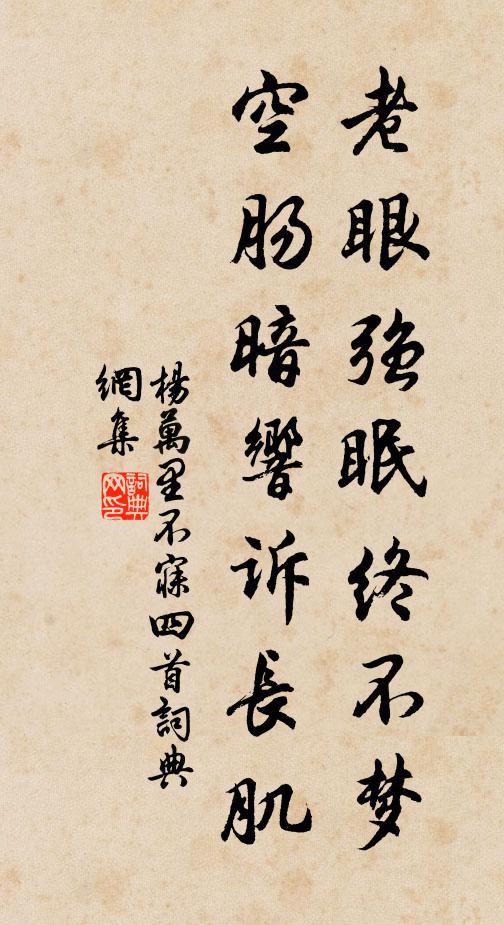 老眼强眠终不梦
空肠暗響诉長肌
楊萬里不寐四首詞典
網集
詞典
网印